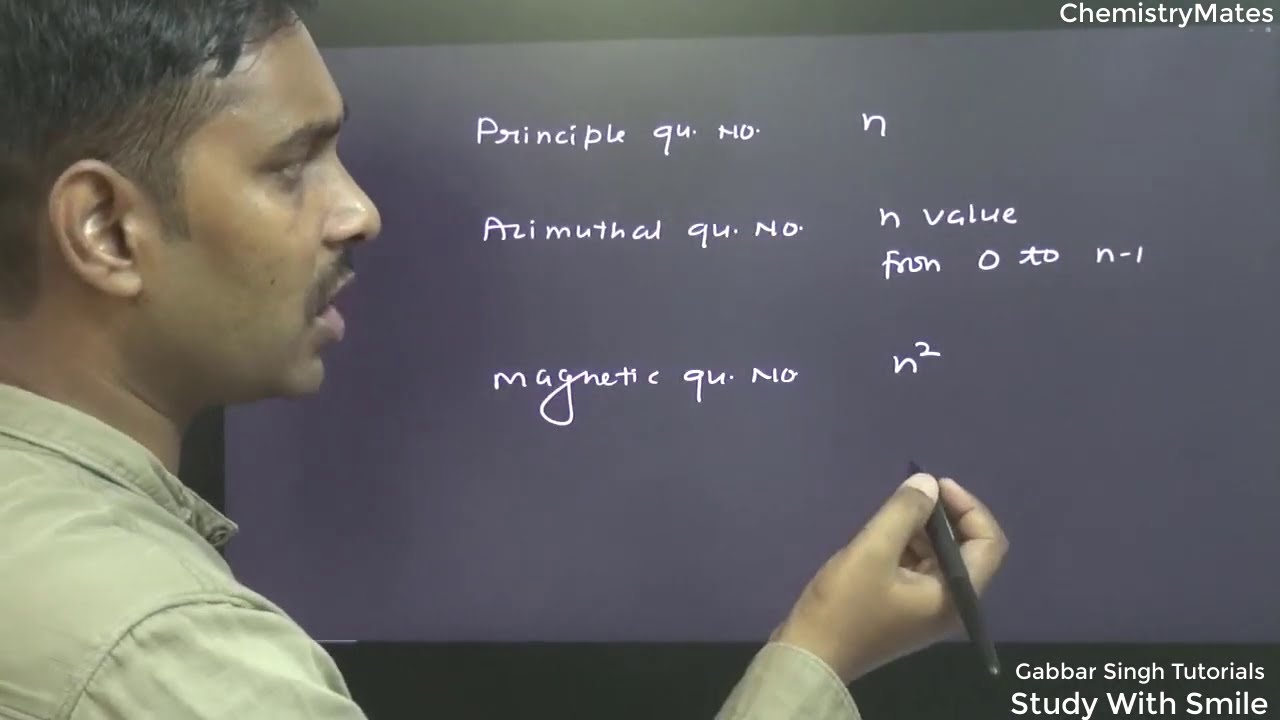 ChemistryMates
Principle qu. No. n
Azimuthal qu. No. n value
from 0 to n-1
magnetic qu. No n²
Gabbar Singh Tutorials
Study With Smile